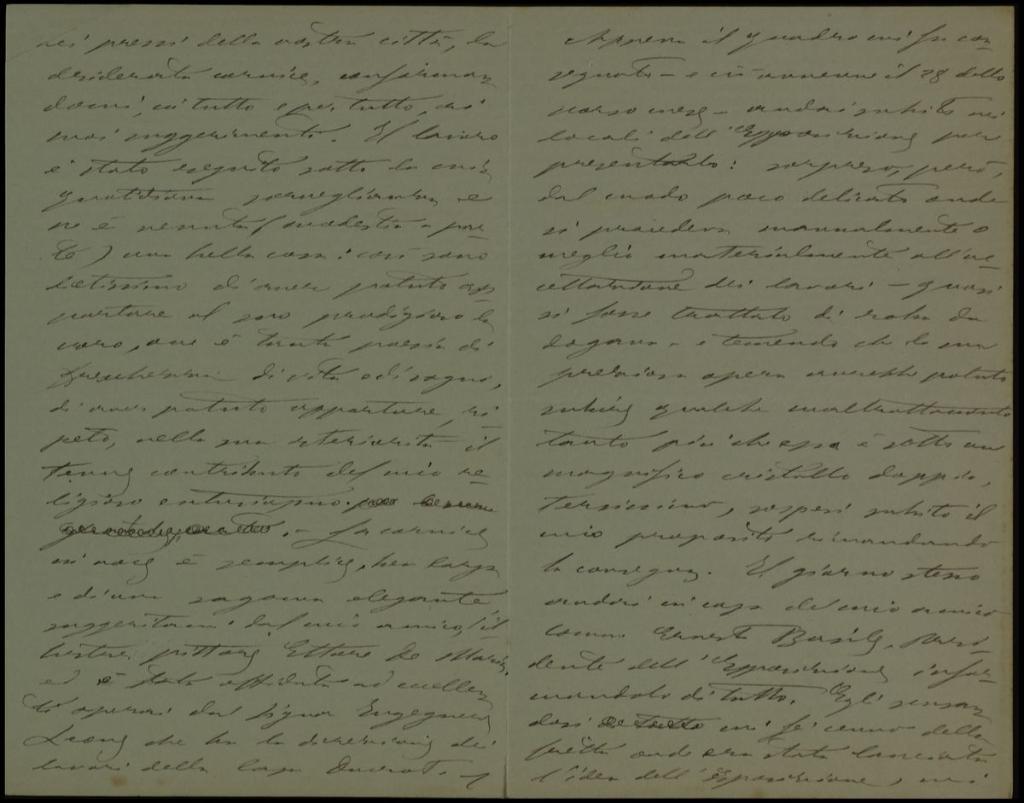 nei pressi della vostra città, la
desiderata cornice, conforman
domi, in tutto e per tutto, ai
suoi suggerimenti. Il lavoro
è stato eseguito sotto la mia
quotidiana sorveglianza e
ne è venuta (modestia a par
te) una bella cosa: così sono
lietissimo di aver potuto ap
portare al suo prodigioso la
voro, ove è tanta poesia di
freschezza di vita e di sogno,
di aver potuto apportare, ri
peto, nella sua esteriorità il
tenue contributo del mio re
ligioso entusiasmo. La cornice
in noce è semplice, ben larga
e di una sagoma elegante
suggeritami dal mio amico, il
pittore Ettore De Maria,
ed è stata affidata ad eccellen
ti operai dal Signor Ingegnere
che ha la direzione dei
lavori della Casa Ducrot.
Appena il quadro mi fu con
segnato - e ciò avvenne il 28 dello
scorso mese - andai subito nei
locali dell'Esposizione per
presentarlo: sorpreso, però,
dal modo poco delicato onde
si procedeva manualmente o
meglio materialmente all'ac
cettazione dei lavori - quasi
si fosse trattato di roba da
dogana - e temendo che la sua
preziosa opera avrebbe potuto
subire qualche maltrattamento
tanto più che essa è sotto un
magnifico cristallo doppio,
tersissimo, sospesi subito il
mio proposito rimandando
la consegna. Il giorno stesso
andai in casa del mio amico
comm. Ernesto Basile, presi
dente dell'Esposizione, infor
mandolo di tutto. Egli scusan
dosi mi fè cenno della
fretta onde era stata lanciata
l'idea dell'Esposizione, mi